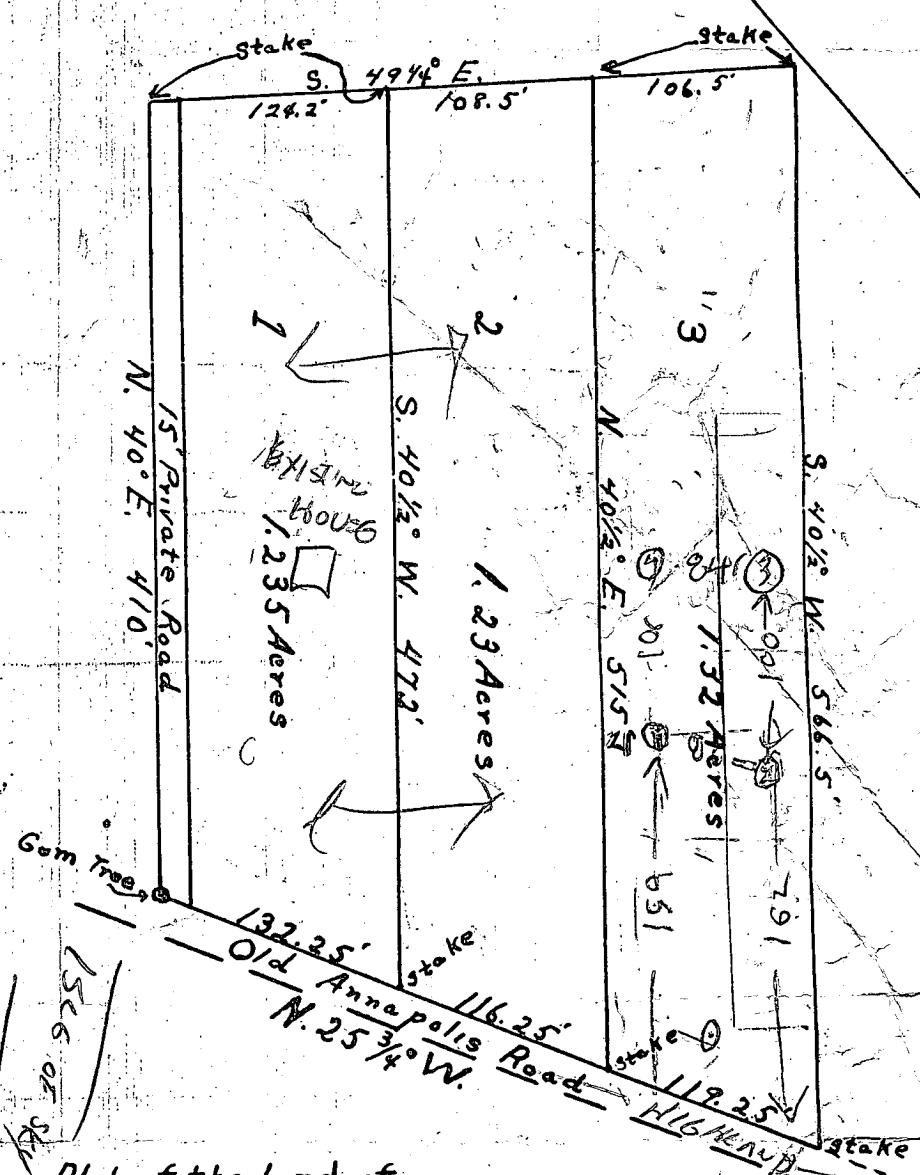 Stake
Stake
S. 49 1/4° E.
124.2'
108.5'
106.5'
1
2
"3
N. 40° E. 410'
15' Private Road
Existing
House
1.235 Acres
S. 40 1/2° W. 472'
1.23 Acres
N. 40 1/2° E. 515
1.32 Acres
S. 40 1/2° W. 566.5'
3
100
Gum Tree
132.25'
Stake
116.25'
Stake
119.25'
Stake
Old Annapolis Road
N. 25 3/4° W.
Plat of the Land of